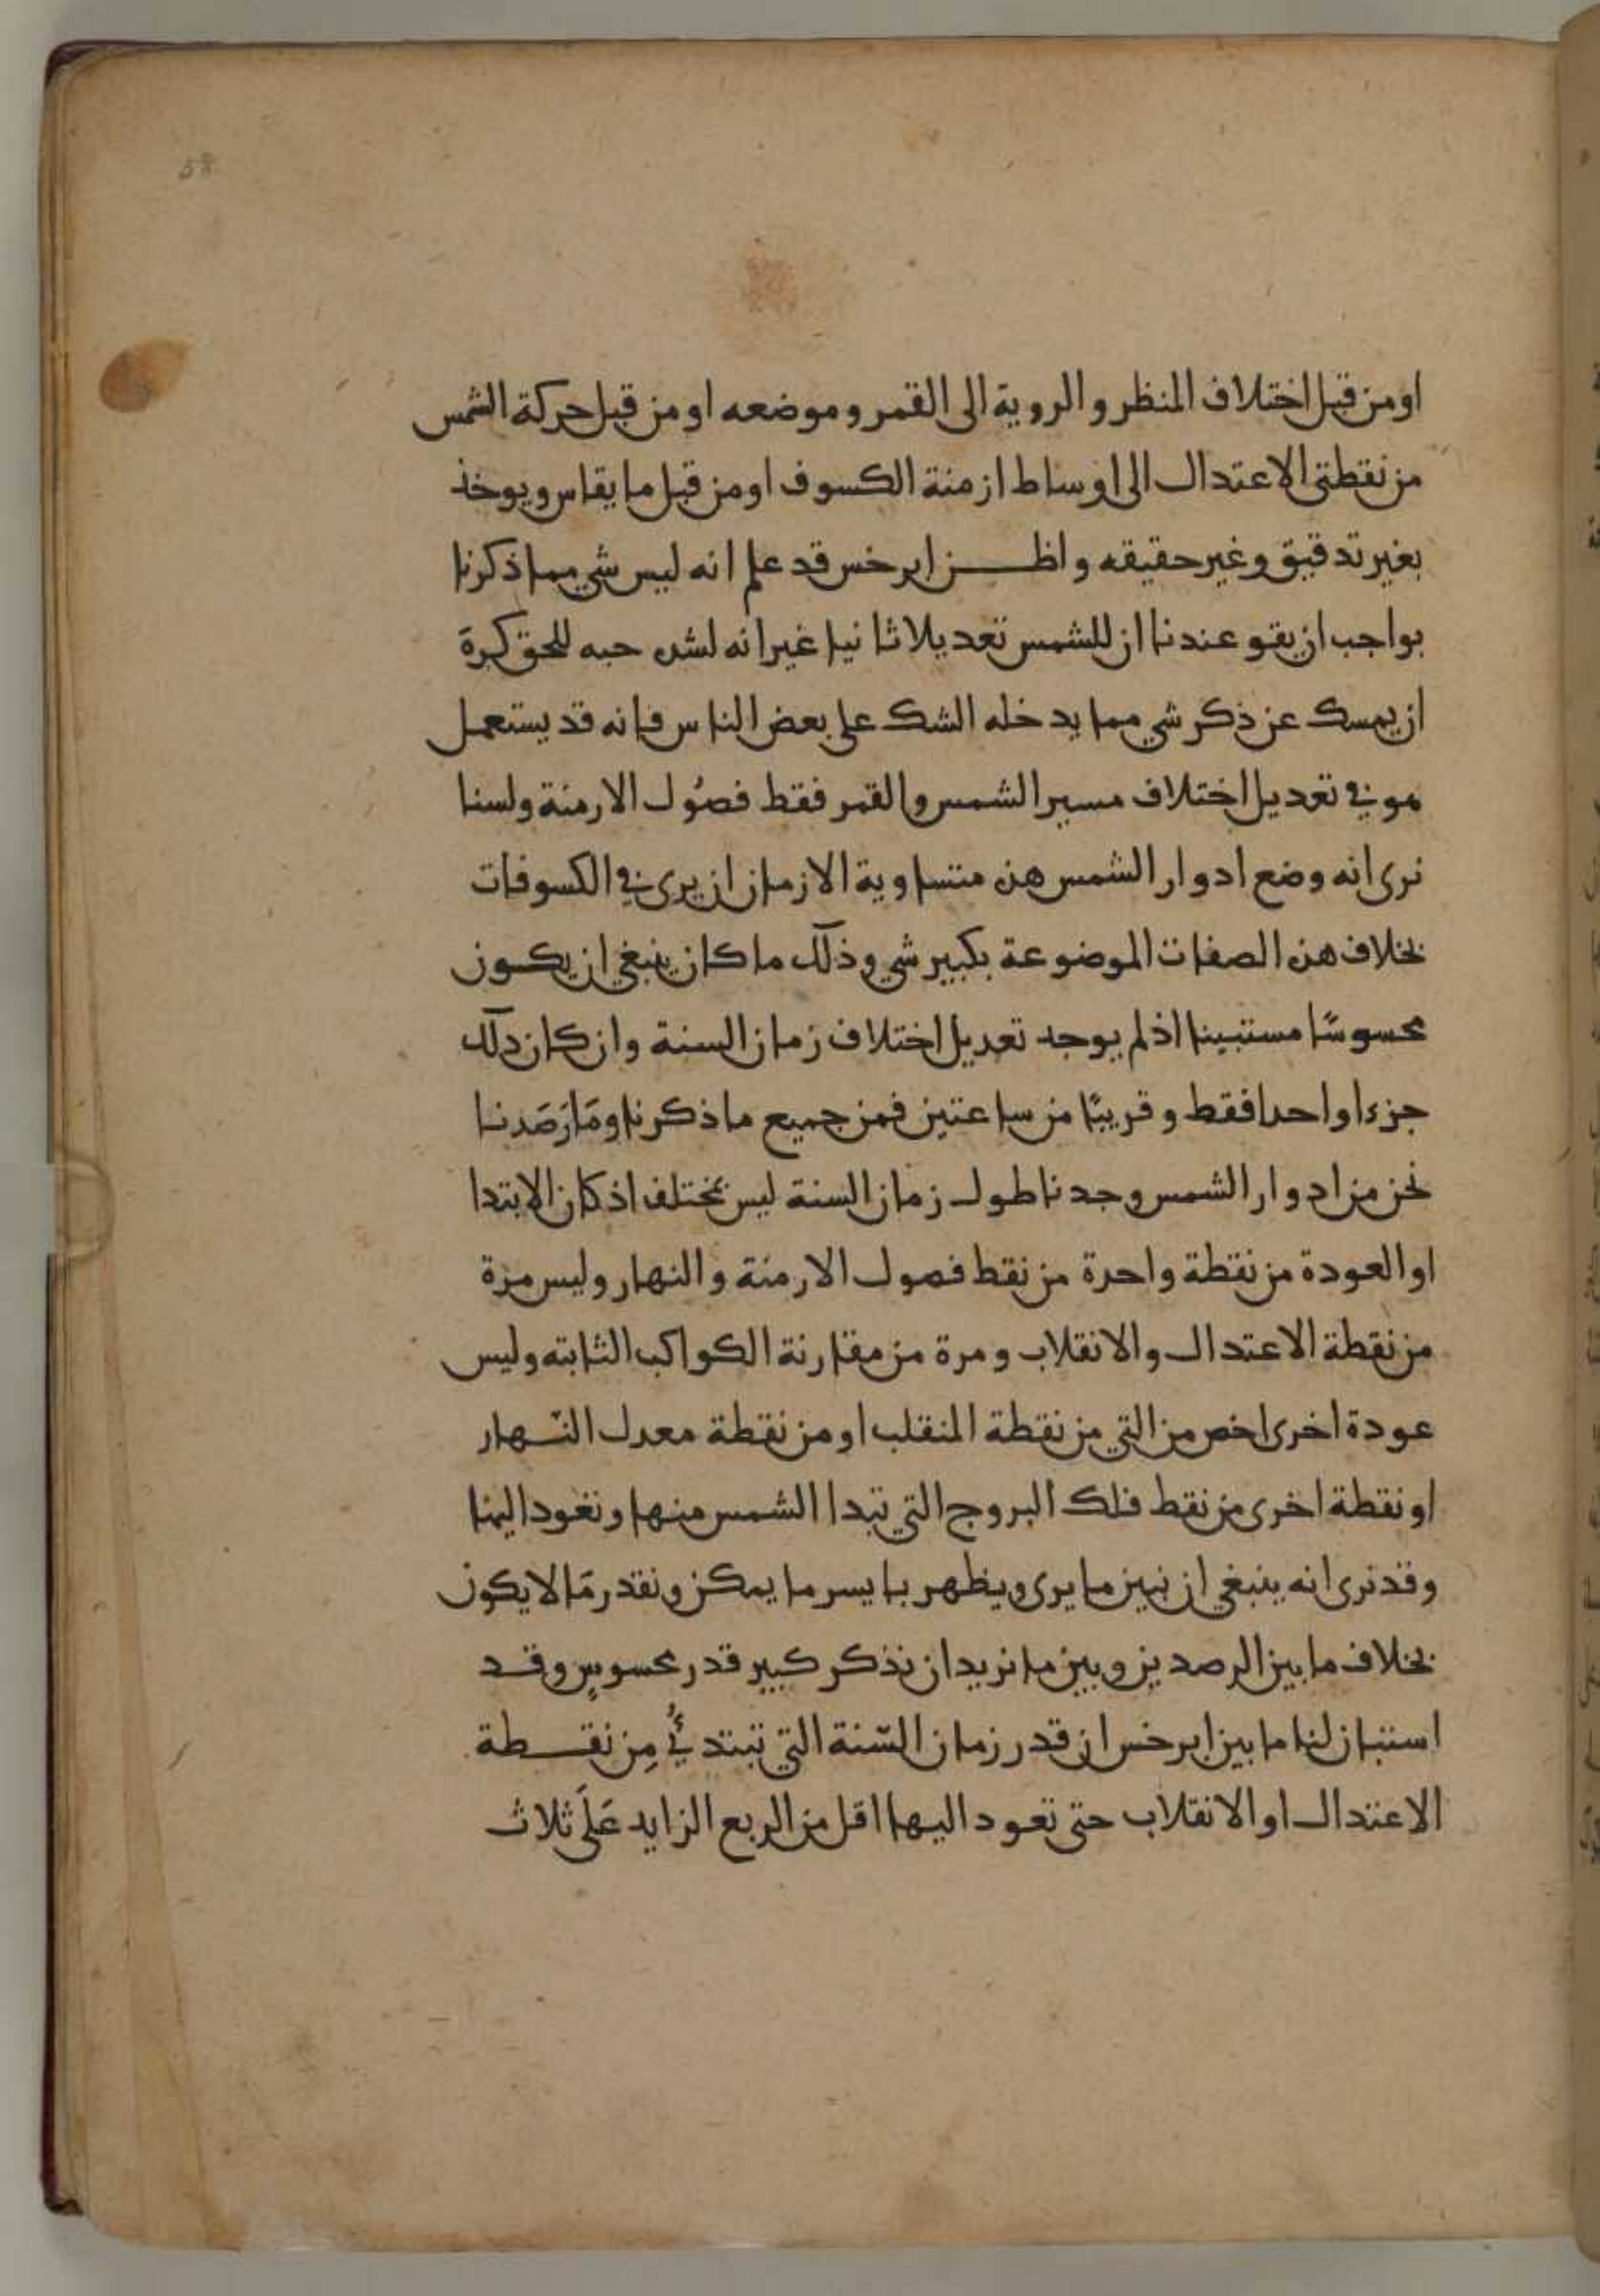 58
او من قبل اختلاف المنظر والروية الى القمر وموضعه او من قبل حركة الشمس
من نقطتى الاعتدال الى اوساط ازمنة الكسوف او من قبل ما يقاس ويوخذ
بغير تدقيق وغير حقيقه واظن ابرخس قد علم انه ليس شي مما ذكرنا
بواجب ان يقو عندنا ان للشمس تعديلا ثانيا غير انه لشده حبه للحق كره
ان يمسك عن ذكر شي مما يدخله الشك على بعض الناس فانه قد يستعمل
هو في تعديل اختلاف مسير الشمس والقمر فقط فصُول الازمنة ولسنا
نرى انه وضع ادوار الشمس هذه متساوية الازمان ان يرى في الكسوفات
بخلاف هذه الصفات الموضوعة بكبير شي وذلك ما كان ينبغي ان يكون
محسوسًا مستبينا اذ لم يوجد تعديل اختلاف زمان السنة وان كان ذلك
جزءا واحدا فقط وقريبًا من ساعتين فمن جميع ما ذكرنا ومَا رَصَدنا
نحن من ادوار الشمس وجدنا طول زمان السنة ليس بختلف اذ كان الابتدا
او العودة من نقطة واحدة من نقط فصول الازمنة والنهار وليس مرة
من نقطة الاعتدال والانقلاب ومرة من مقارنة الكواكب الثابته وليس
عودة اخرى اخص من التي من نقطة المنقلب او من نقطة معدل النّهار
او نقطة اخرى من نقط فلك البروج التي تبدا الشمس منها وتعود اليها
وقد نرى انه ينبغي ان نبين ما يرى ويظهر بايسر ما يمكن ونقدر مَا لا يكون
بخلاف ما بين الرصدين وبين ما نريد ان نذكر كبير قدر محسوسٍ وقد
استبان لنا ما بين ابرخس ان قدر زمان السّنة التي تبتدئُ مِن نقطة
الاعتدال او الانقلاب حتى تعود اليها اقل من الربع الزايد عَلَى ثلاث